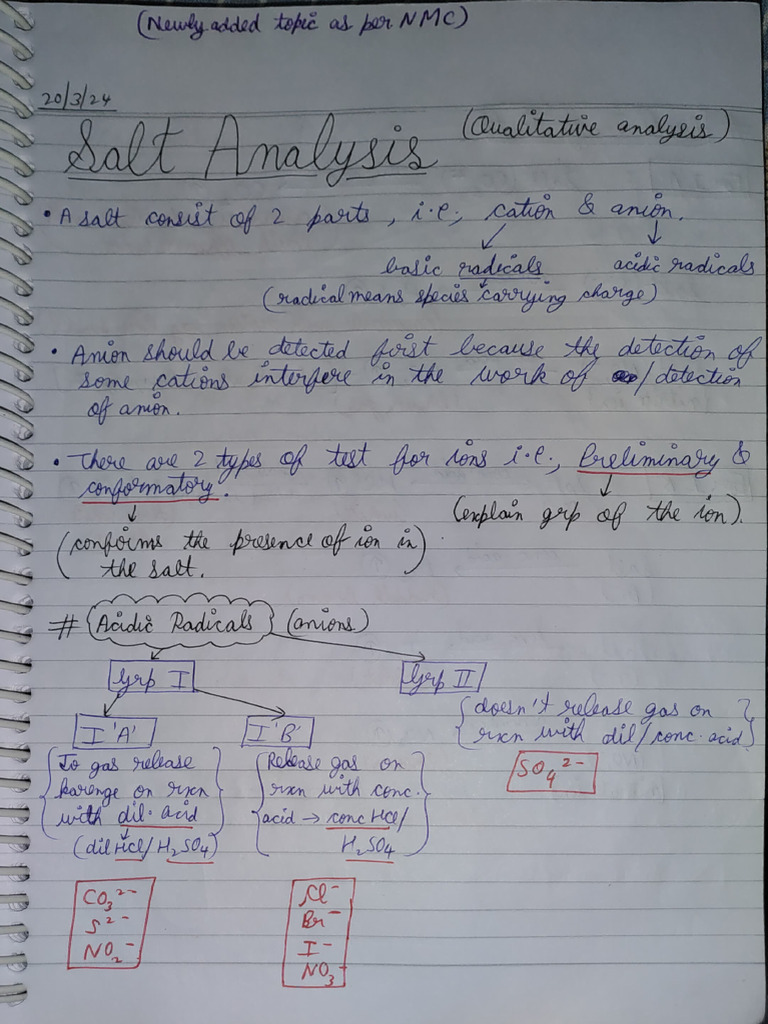 (Newly added topic as per NMC)
20/3/24
Salt Analysis (Qualitative analysis)
• A salt consist of 2 parts, i.e., cation & anion.
↓ ↓
basic radicals acidic radicals
(radical means species carrying charge)
• Anion should be detected first because the detection of
some cations interfere in the work of /detection
of anion.
• There are 2 types of test for ions i.e., Preliminary &
conformatory.
(explain grp of the ion).
(conforms the presence of ion in)
the salt.
# Acidic Radicals (anions)
Grp I Grp II
{doesn't release gas on
rxn with dil/conc. acid}
I 'A' I 'B'
SO₄²⁻
{Jo gas release
karenge on rxn
with dil. acid}
(dil HCl/H₂SO₄)
{Release gas on
rxn with conc.
acid → conc HCl/
H₂SO₄}
CO₃²⁻
S²⁻
NO₂⁻
Cl⁻
Br⁻
I⁻
NO₃⁻